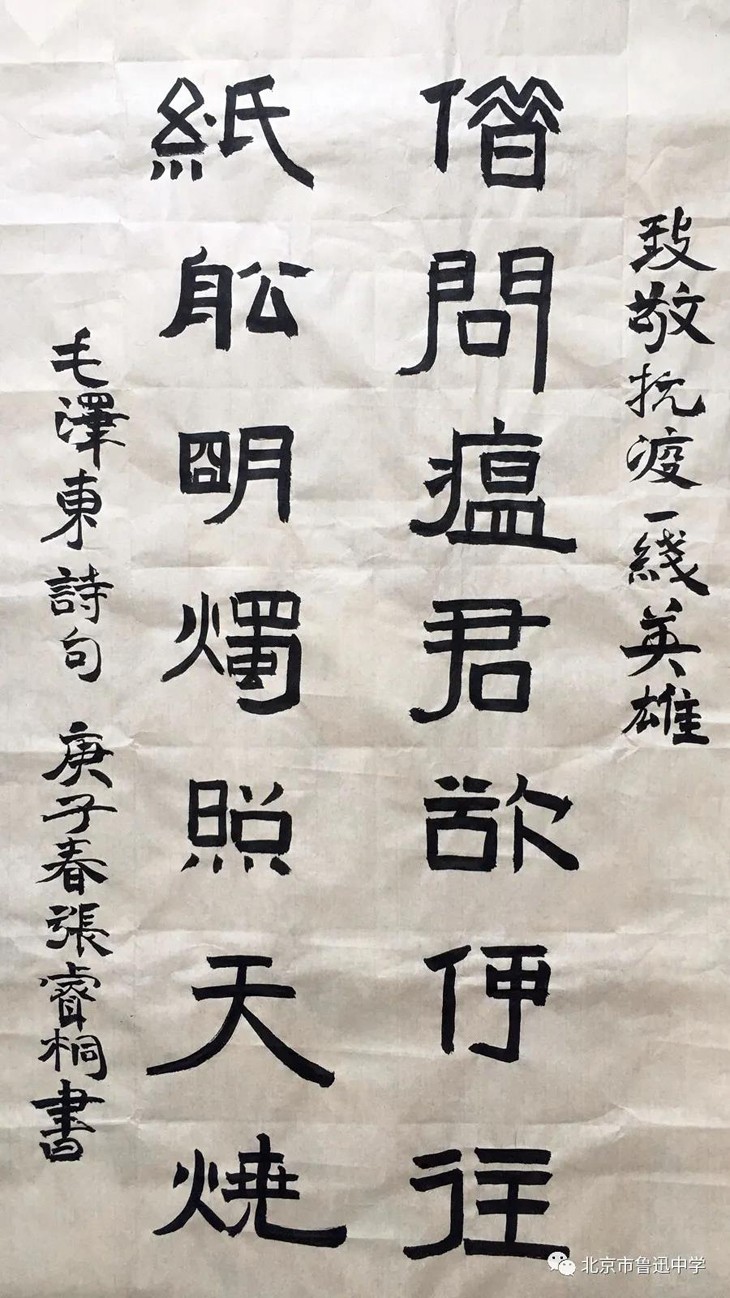 致敬抗疫一綫英雄
借問瘟君欲何往
紙舩朙燭照天燒
毛澤東詩句 庚子春張睿桐書
北京市鲁迅中学